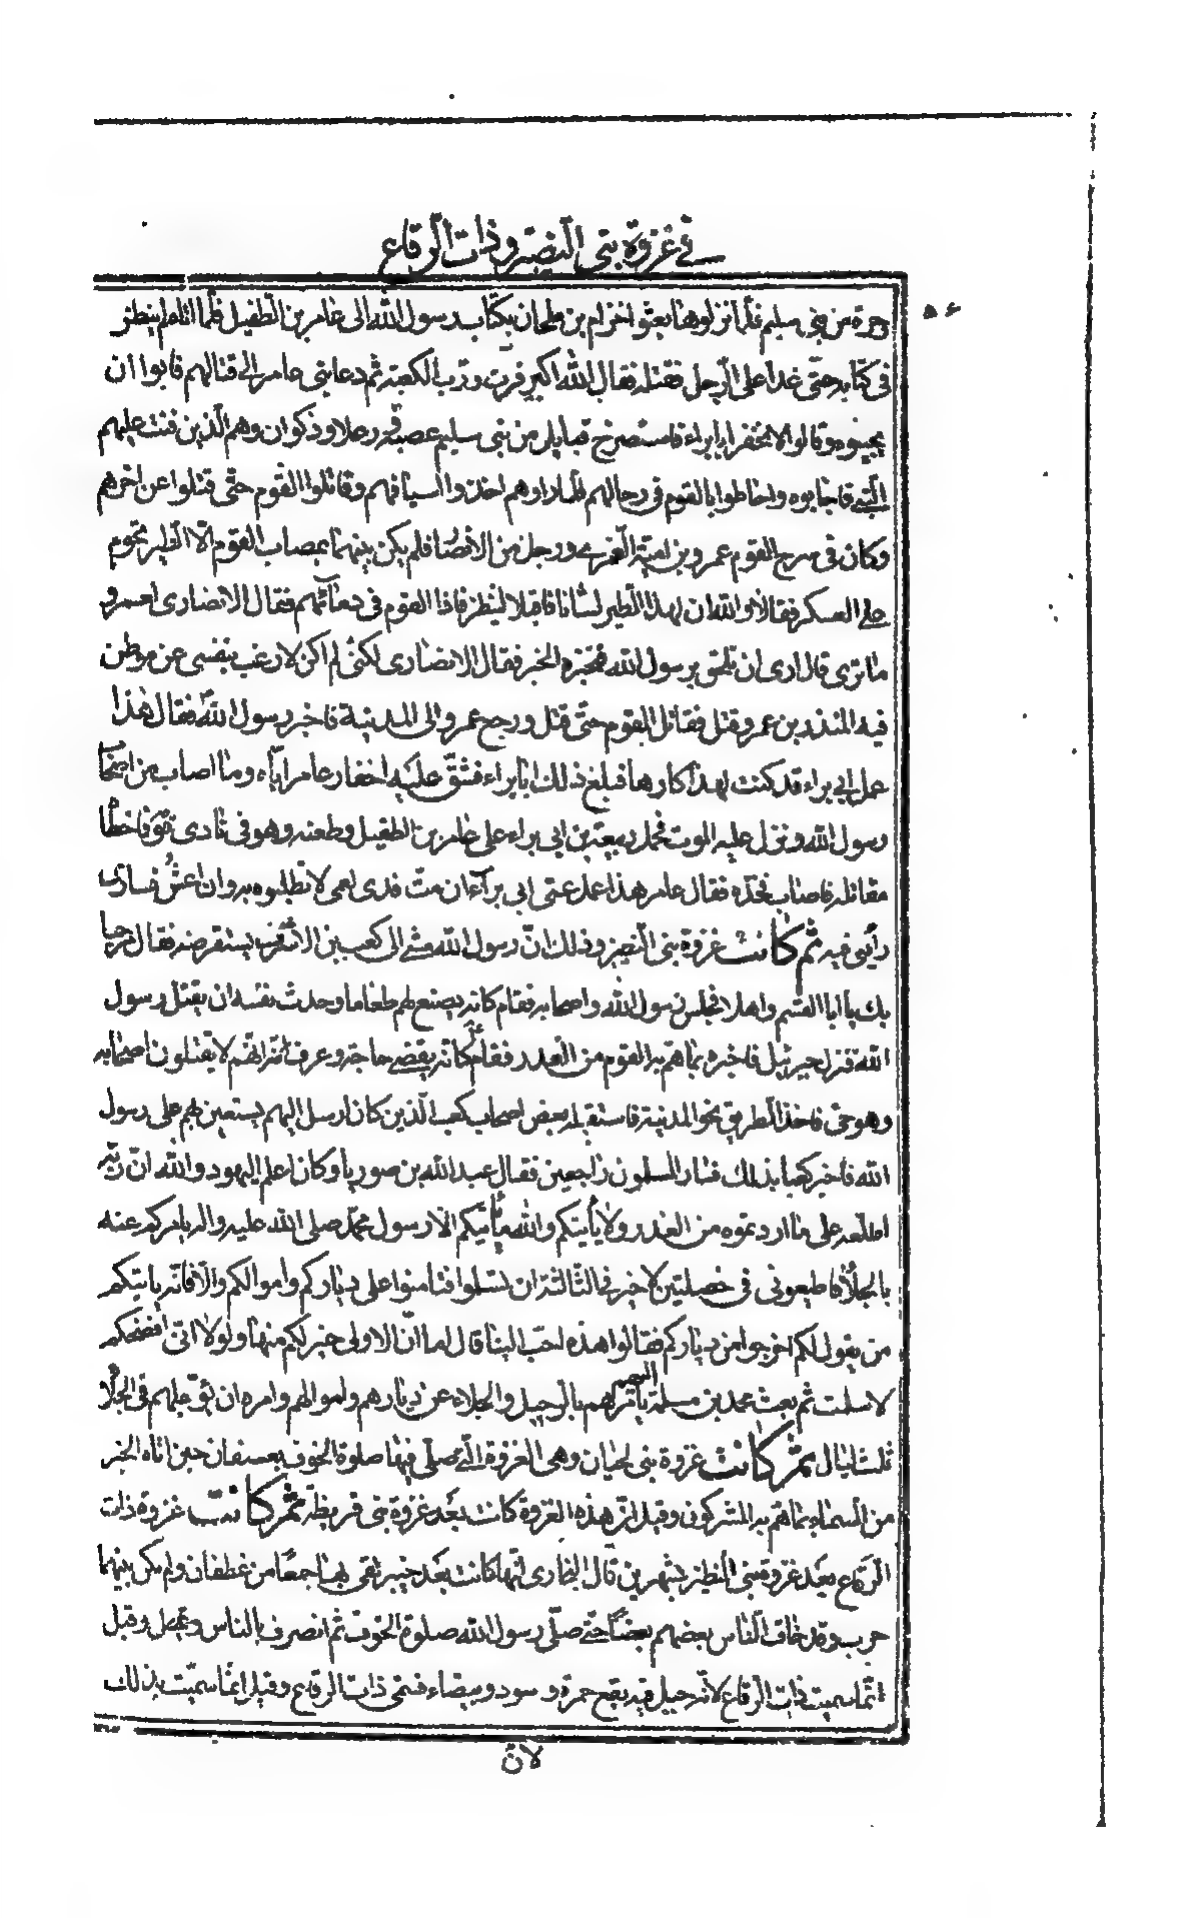 في غزوة بني النضير وذات الرقاع
٥٤
حرة من بني سليم فلما نزلوها بعثوا حرام بن ملحان بكتاب رسول الله الى عامر بن الطفيل فلما اتاهم لم ينظر
في كتابه حتى عدا على الرجل فقتله فقال الله اكبر فزت ورب الكعبة ثم دعا بني عامر الى قتالهم فابوا ان
يجيبوه وقالوا لا نخفر ابا براء فاستصرخ قبايل من بني سليم عصية ورعلا وذكوان وهم الذين قنت عليهم
النبي فاجابوه واحاطوا بالقوم في رحالهم فلما راوهم اخذوا اسيافهم وقاتلوا القوم حتى قتلوا عن اخرهم
وكان في سرح القوم عمرو بن امية الضمري ورجل من الانصار فلم يكن ينبهما بمصاب القوم الا الطير تحوم
على العسكر فقالا والله ان لهذا الطير لشانا فاقبلا لينظرا فاذا القوم في دمائهم فقال الانصارى لعمرو
ما ترى قال ارى ان نلحق برسول الله فنخبره الخبر فقال الانصارى لكني لم اكن لارغب بنفسى عن موطن
فيه المنذر بن عمرو قتل فقاتل القوم حتى قتل ورجع عمرو الى المدينة فاخبر رسول الله فقال هذا
عمل ابي براء قد كنت لهذا كارها فبلغ ذلك ابا براء فشق عليه اخفار عامر اياه وما اصاب من اصحاب
رسول الله ونزل عليه الموت فحمل ربيعة بن ابي براء على عامر بن الطفيل وطعنه وهو في نادى قومه فاخطأ
مقاتله فاصاب فخذه فقال عامر هذا عمل عمى ابي براء ان مت فدمى لعمى لا تطلبوه به وان اعش فسارى
رأيي فيه ثم كانت غزوة بني النضير وذلك ان رسول الله مشى الى كعب بن الاشرف يستقرضه فقال مرحبا
بك يا ابا القسم واهلا فجلس رسول الله واصحابه فقام كانه يصنع لهم طعاما وحدث نفسه ان يقتل رسول
الله فنزل جبرئيل فاخبره بما هم به القوم من الغدر فقام كانه يقضي حاجة وعرف انهم لا يقتلون اصحابه
وهو حي فاخذ الطريق نحو المدينة فاستقبله بعض اصحاب كعب الذين كان ارسل اليهم يستعين بهم على رسول
الله فاخبر كعبا بذلك فسار المسلمون راجعين فقال عبد الله بن صوريا وكان اعلم اليهود والله ان ربه
اطلعه على ما اردتموه من الغدر ولا يأتيكم والله يأتيكم الا رسول محمد صلى الله عليه واله يامركم عنه
بالجلاء فاطيعوني في خصلتين لا خير في الثالثة ان تسلموا فتامنوا على دياركم واموالكم والا فانه ياتيكم
من يقول لكم اخرجوا من دياركم فقالوا هذه احب الينا قال اما ان الاولى خير لكم منها ولولا اني افضحكم
لاسلمت ثم بعث محمد بن مسلمة اليهم يامرهم بالرحيل والجلاء عن ديارهم واموالهم وامره ان يؤجلهم في الجلاء
ثلث ليال ثم كانت غزوة بني لحيان وهى الغزوة التي صلى فيها صلوة الخوف بعسفان حين اتاه الخبر
من السماء بما هم به المشركون وقيل ان هذه الغزوة كانت بعد غزوة بني قريظة ثم كانت غزوة ذات
الرقاع بعد غزوة بني النظير بشهرين قال البخارى انها كانت بعد خيبر لقى بها جمعا من غطفان ولم يكن بينهما
حرب وقد خاف الناس بعضهم بعضا حتى صلى رسول الله صلوة الخوف ثم انصرف بالناس وقيل
انما سميت ذات الرقاع لانه جبل فيه بقع حمرة وسود وبيضاء فسمى ذات الرقاع وقيل انما سميت بذلك
لان